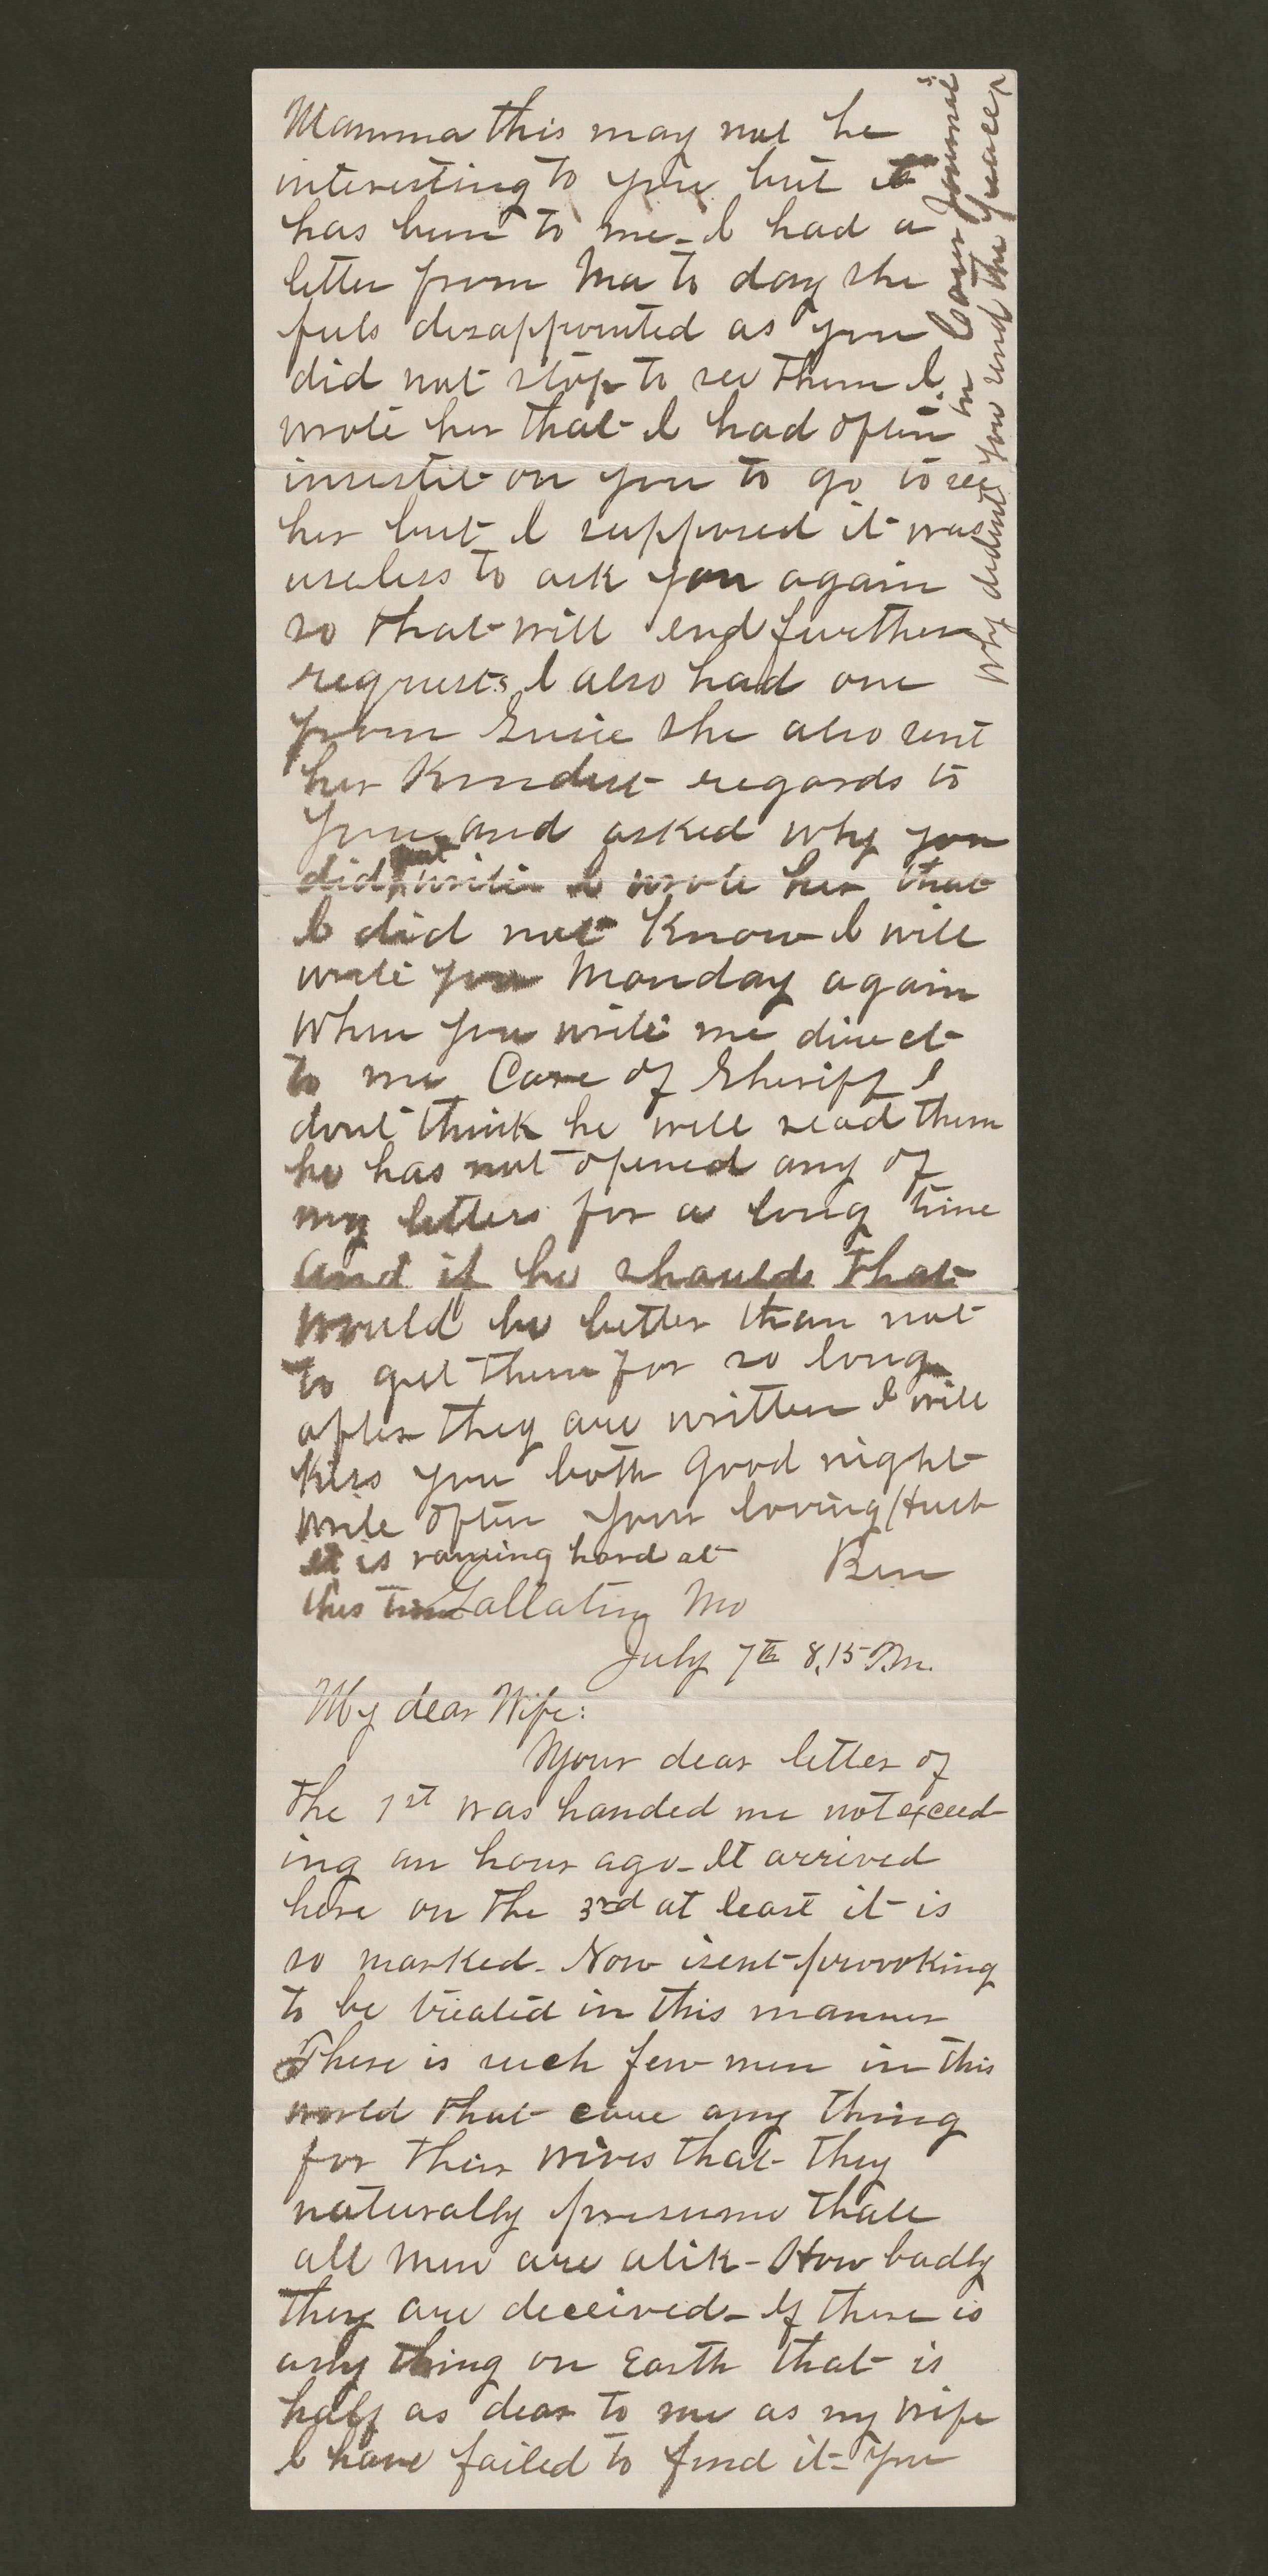 Mamma this may not be
interesting to you but it
has been to me - I had a
letter from Ma to day she
feels disappointed as you
did not stop to see them I
wrote her that I had often
insestit on you to go to see
her but I supposed it was
useless to ask you again
so that will end further
requests I also had one
from Susie she also sent
her Kindest regards to
you and asked why you
did not write I wrote her that
I did not Know I will
write you Monday again
When you write me direct
to me Care of Sheriff I
dont think he will read them
he has not opened any of
my letters for a long time
and if he should that
would be better than not
to get them for so long
after they are written I will
kiss you both Good night
write often your loving Husb
Ben
it is raining hard at
this time
Gallatin Mo
July 7th 8,15 P.m.
My dear Wife:
Your dear letter of
the 1st was handed me not exceed
ing an hour ago - It arrived
here on the 3rd at least it is
so marked - Now isent provoking
to be treated in this manner
There is such few men in this
world that care any thing
for their wives that they
naturally presume that
all men are alik - How badly
they are deceived - If there is
any thing on Earth that is
half as dear to me as my wife
I have failed to find it - You
Why didnt you send the
in